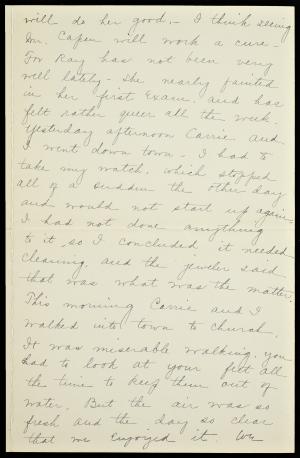 will do her good. - I think seeing
Dr. Capen will work a cure -
For Ray has not been very
well lately - She nearly fainted
in her first Exam. and has
felt rather queer all the week.
Yesterday afternoon Carrie and
I went down town - I had to
take my watch, which stopped
all of a sudden the other day
and would not start up again -
I had not done anything
to it, so I concluded it needed
cleaning, and the jeweler said
that was what was the matter.
This morning Carrie and I
walked into town to church.
It was miserable walking, you
had to look at your feet all
the time to keep them out of
water. But the air was so
fresh and the day so clear
that we enjoyed it. We